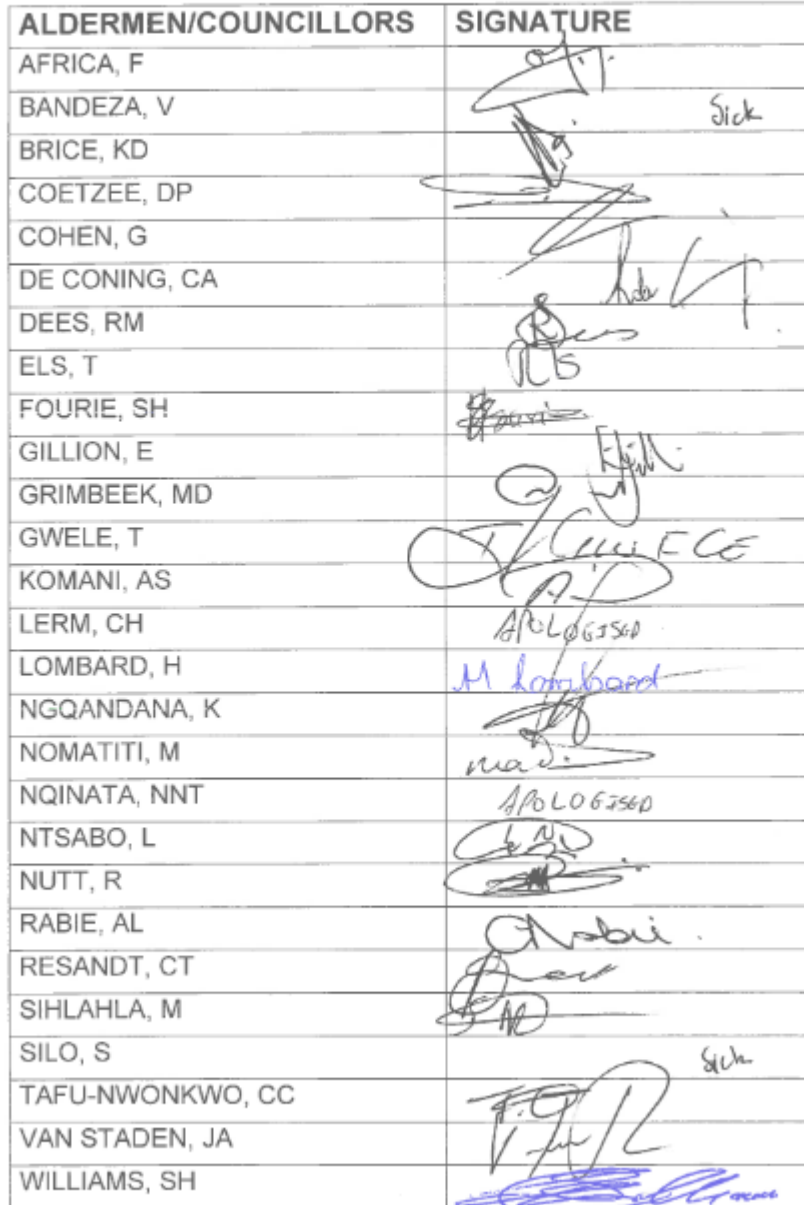 ALDERMEN/COUNCILLORS SIGNATURE
AFRICA, F
BANDEZA, V Sick
BRICE, KD
COETZEE, DP
COHEN, G
DE CONING, CA
DEES, RM
ELS, T
FOURIE, SH
GILLION, E
GRIMBEEK, MD
GWELE, T
KOMANI, AS
LERM, CH APOLOGISED
LOMBARD, H H Lombard
NGQANDANA, K
NOMATITI, M
NQINATA, NNT APOLOGISED
NTSABO, L
NUTT, R
RABIE, AL
RESANDT, CT
SIHLAHLA, M
SILO, S Sick
TAFU-NWONKWO, CC
VAN STADEN, JA
WILLIAMS, SH